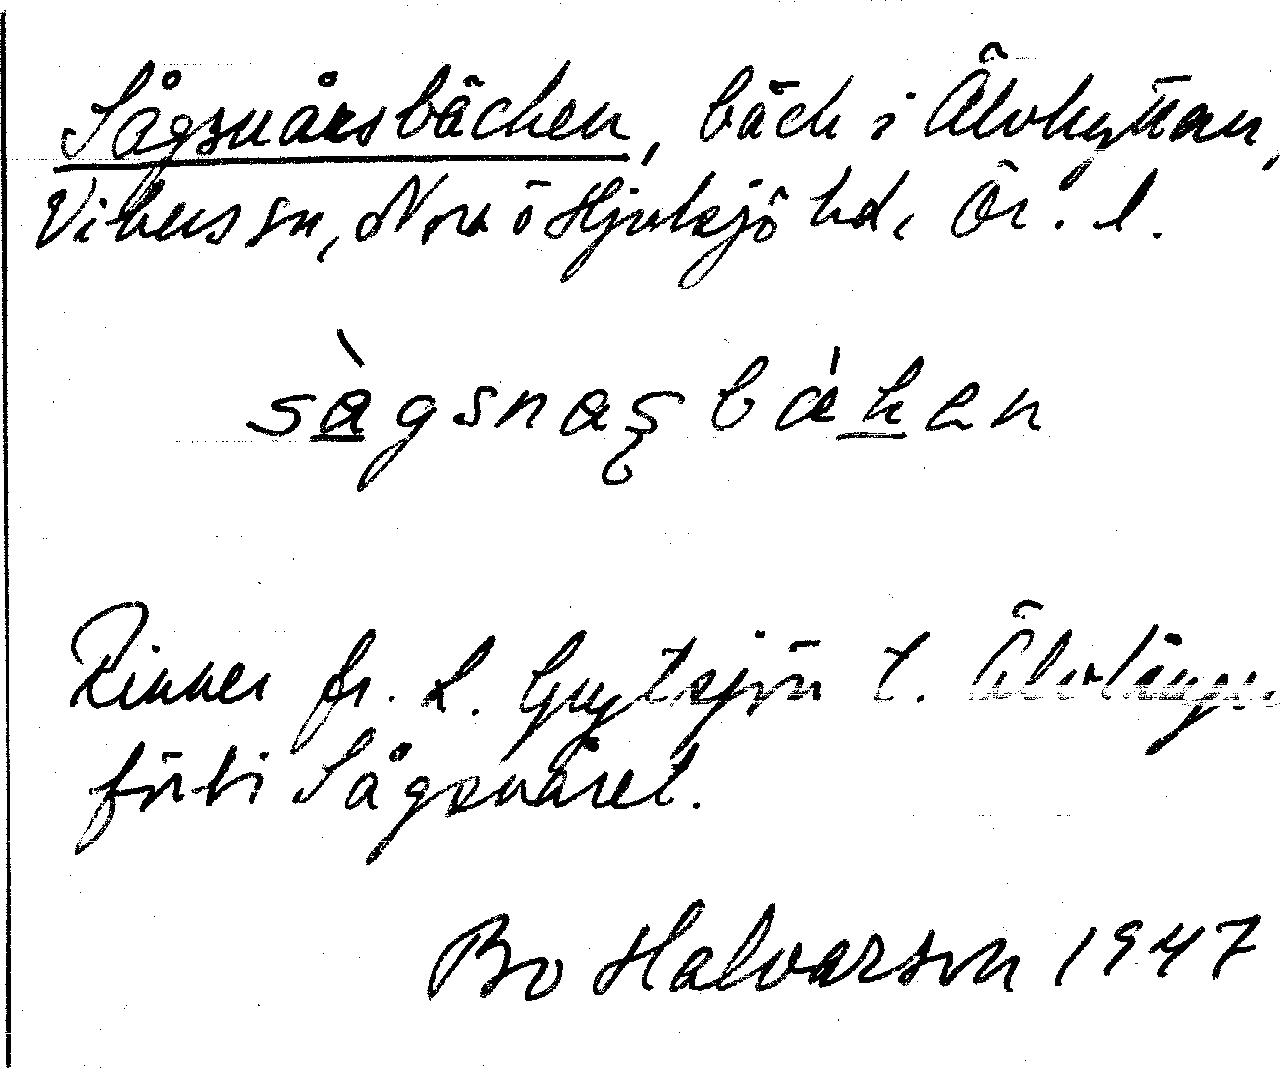 Sågsnårsbäcken, bäck i Älvhyttan,
Vikers sn, Nora o Hjulsjö hd, Ör. l.
sågsnasbäken
Rinner fr. L. Grytsjön t. Älvlången
förbi Sågsnåret.
Bo Halvarson 1947